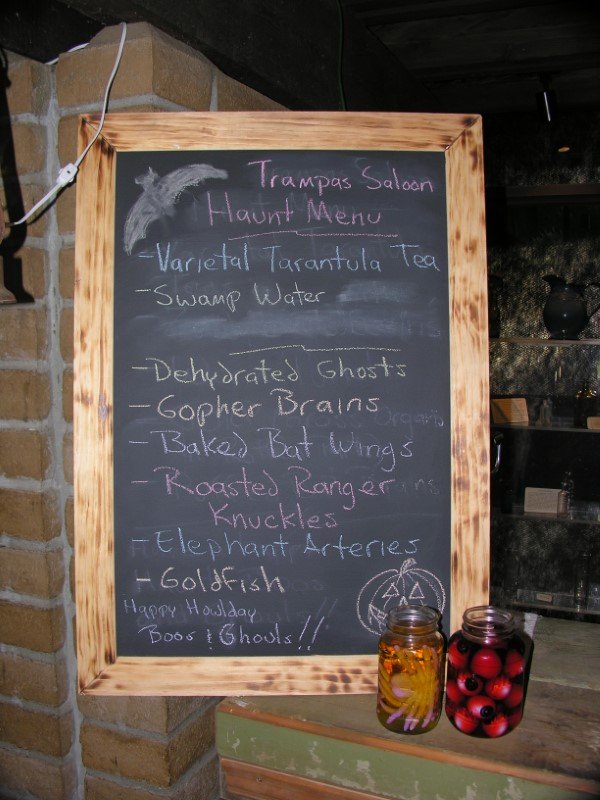 Trampas Saloon
Haunt Menu
-Varietal Tarantula Tea
-Swamp Water
-Dehydrated Ghosts
-Gopher Brains
-Baked Bat Wings
-Roasted Ranger
Knuckles
-Elephant Arteries
-Goldfish
Happy Howlday
Boos & Ghouls!!